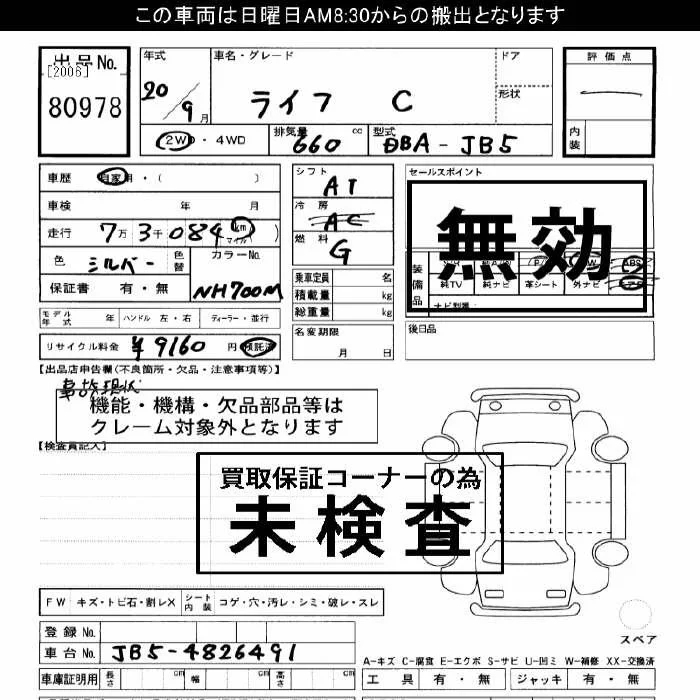 この車両は日曜日AM8:30からの搬出となります
出品No.
[2006]
80978
年式
20/9月
車名・グレード
ライフ C
ドア
形状
評価点
内装
2WD・4WD
排気量
660 cc
型式
DBA-JB5
車歴 自家用・( )
車検 年 月
走行 7万3千084 km マイル
色 シルバー 色替
カラーNo.
NH700M
保証書 有・無
シフト
AT
冷房
AC
燃料
G
乗車定員 名
積載量 kg
総重量 kg
セールスポイント
無効
装備品
ABS
純TV 純ナビ 革シート 外ナビ
ナビ型番:
モデル年式 年 ハンドル 左・右 ディーラー・並行
名変期限
月 日
後日品
リサイクル料金 ¥9160 円 預託済
【出品店申告欄(不良箇所・欠品・注意事項等)】
事故現状
機能・機構・欠品部品等は
クレーム対象外となります
【検査員記入】
買取保証コーナーの為
未検査
FW キズ・トビ石・割レX シート内装 コゲ・穴・汚レ・シミ・破レ・スレ
スペア
登録No.
車台No. JB5-4826491
A-キズ C-腐食 E-エクボ S-サビ U-凹ミ W-補修 XX-交換済
車庫証明用 長さ cm 幅 cm 高さ cm
工具 有・無 ジャッキ 有・無